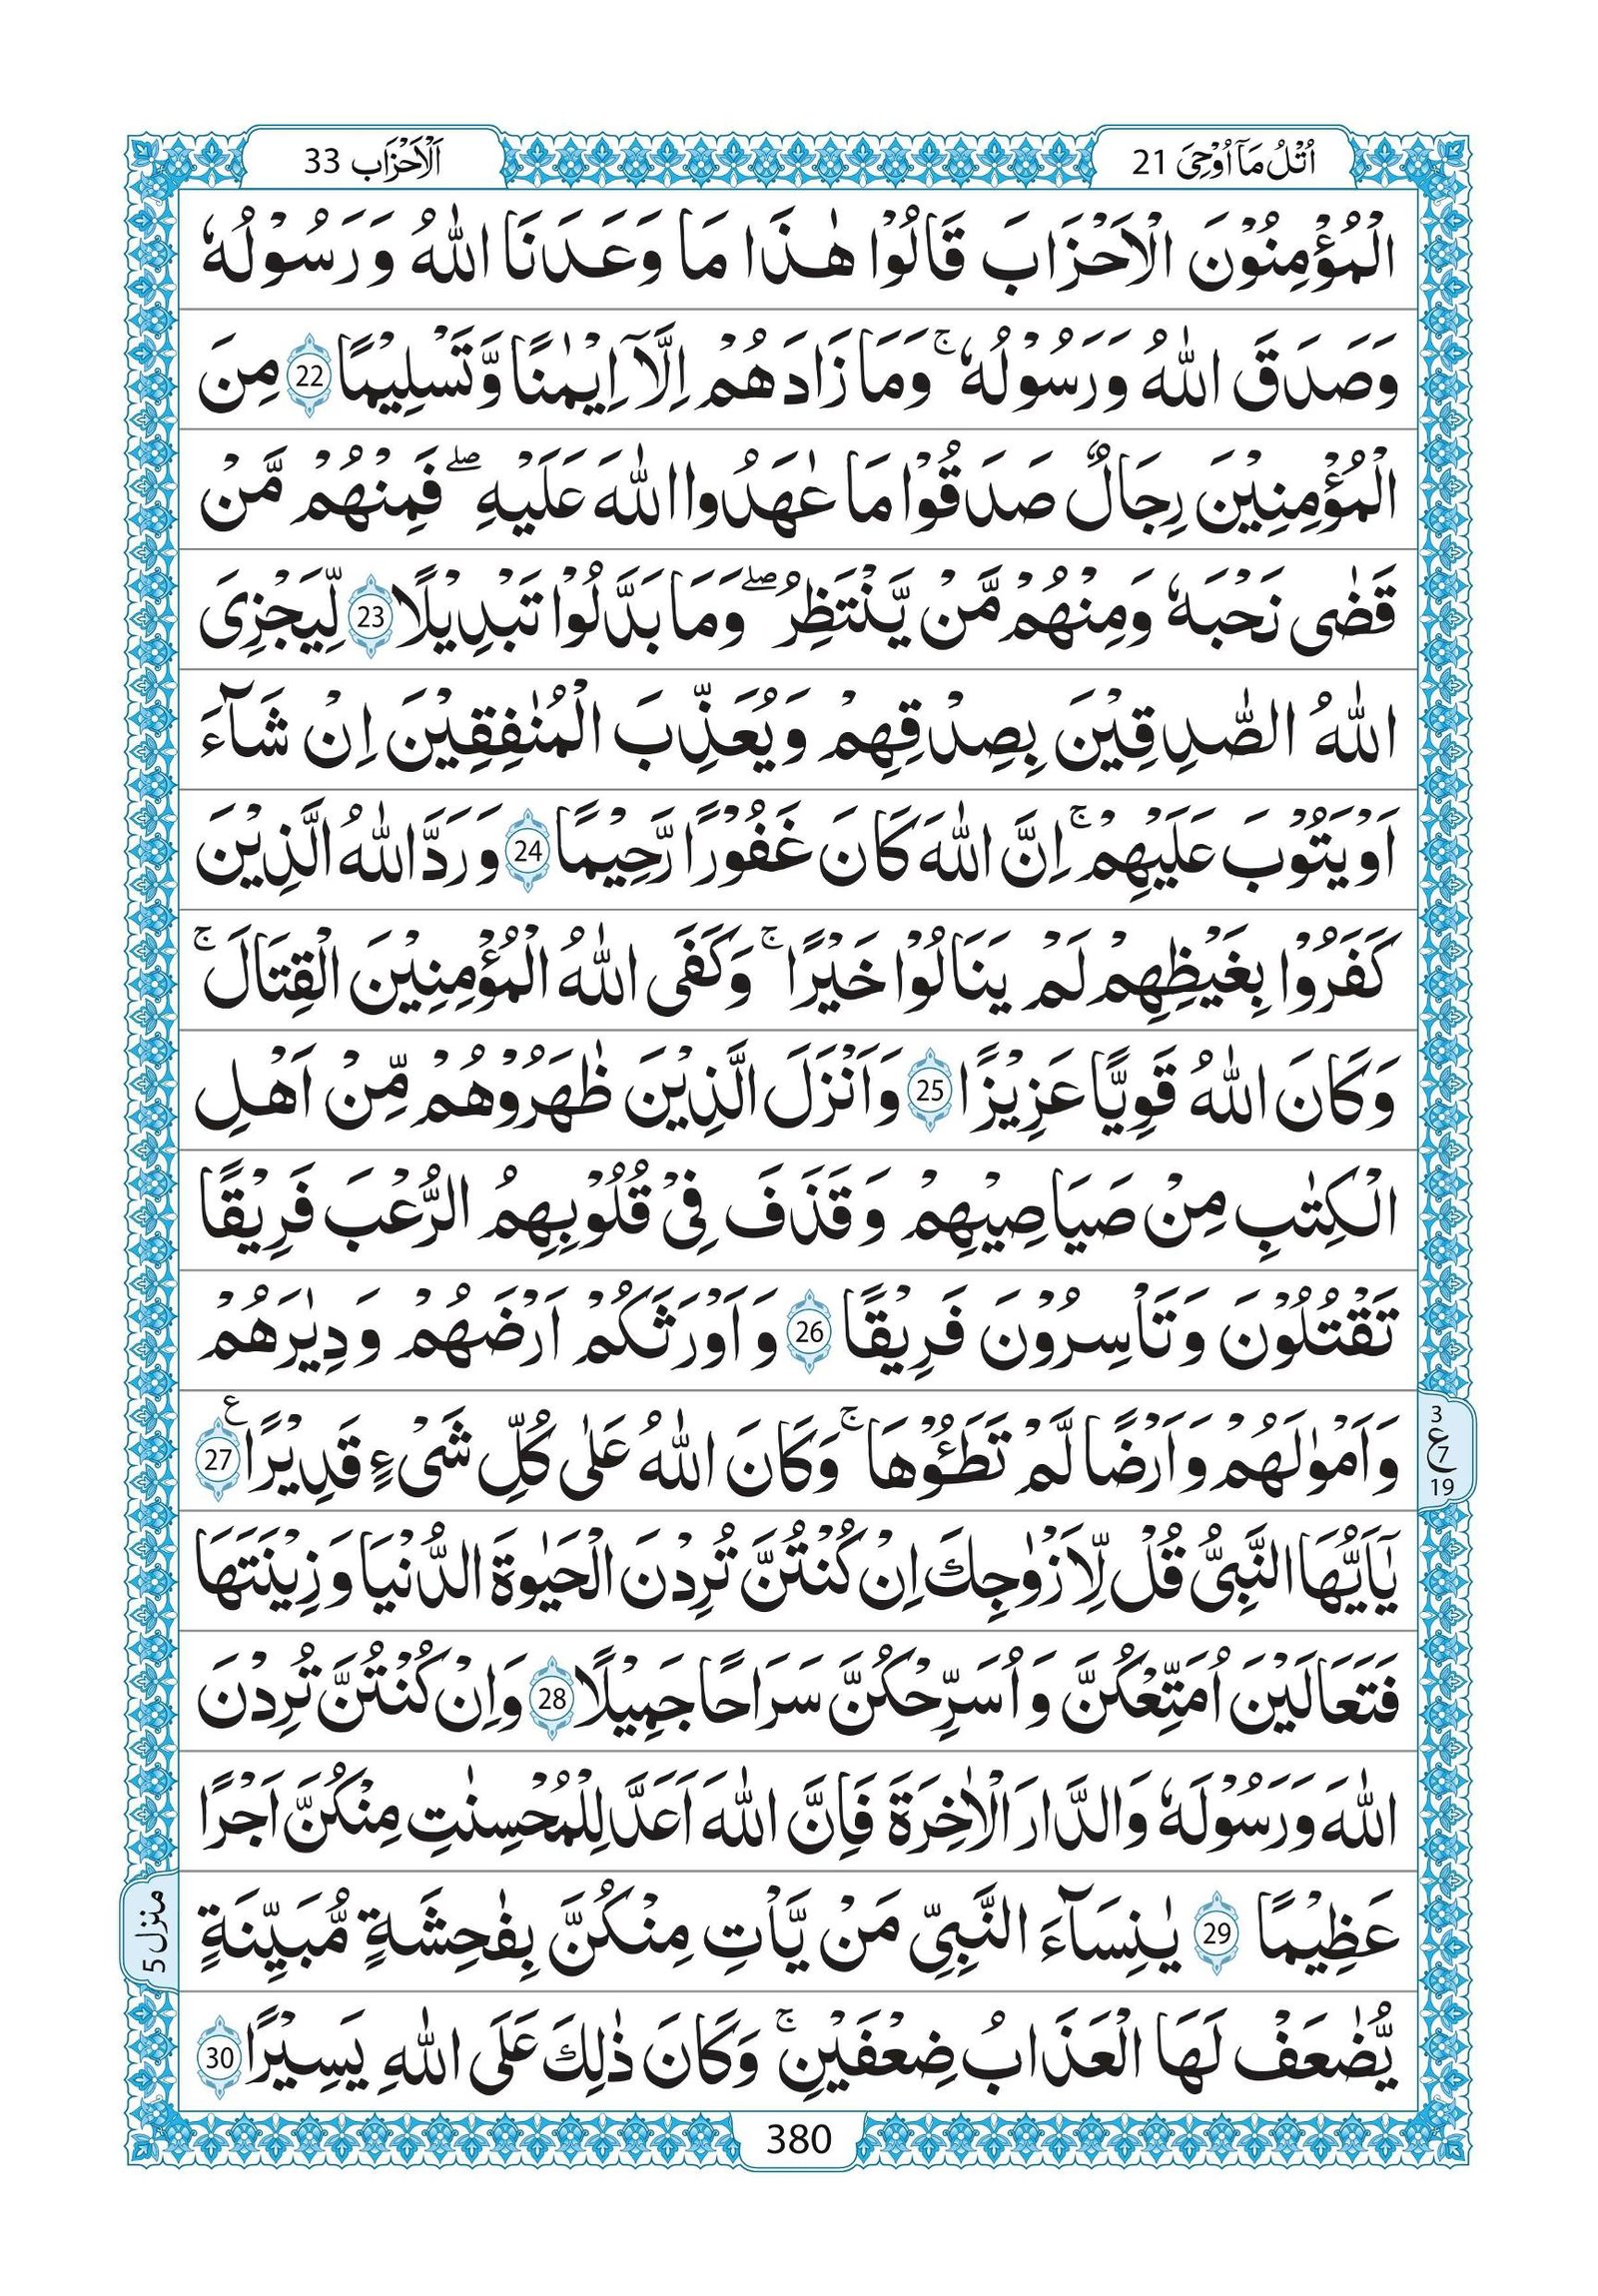 اُتْلُ مَاۤ اُوْحِیَ 21
اَلْاَحْزَاب 33
الْمُؤْمِنُوْنَ الْاَحْزَابَ قَالُوْا هٰذَا مَا وَعَدَنَا اللّٰهُ وَ رَسُوْلُهٗ
وَصَدَقَ اللّٰهُ وَرَسُوْلُهٗ ۚ وَمَا زَادَهُمْ اِلَّاۤ اِیْمٰنًا وَّتَسْلِیْمًا 22 مِنَ
الْمُؤْمِنِیْنَ رِجَالٌ صَدَقُوْا مَا عٰهَدُوا اللّٰهَ عَلَیْهِ ۖ فَمِنْهُمْ مَّنْ
قَضٰی نَحْبَهٗ وَمِنْهُمْ مَّنْ یَّنْتَظِرُ ۖ وَمَا بَدَّلُوْا تَبْدِیْلًا 23 لِّیَجْزِیَ
اللّٰهُ الصّٰدِقِیْنَ بِصِدْقِهِمْ وَیُعَذِّبَ الْمُنٰفِقِیْنَ اِنْ شَآءَ
اَوْ یَتُوْبَ عَلَیْهِمْ ۚ اِنَّ اللّٰهَ كَانَ غَفُوْرًا رَّحِیْمًا 24 وَ رَدَّ اللّٰهُ الَّذِیْنَ
كَفَرُوْا بِغَیْظِهِمْ لَمْ یَنَالُوْا خَیْرًا ۚ وَكَفَی اللّٰهُ الْمُؤْمِنِیْنَ الْقِتَالَ ۚ
وَكَانَ اللّٰهُ قَوِیًّا عَزِیْزًا 25 وَاَنْزَلَ الَّذِیْنَ ظٰهَرُوْهُمْ مِّنْ اَهْلِ
الْكِتٰبِ مِنْ صَیَاصِیْهِمْ وَقَذَفَ فِیْ قُلُوْبِهِمُ الرُّعْبَ فَرِیْقًا
تَقْتُلُوْنَ وَتَاْسِرُوْنَ فَرِیْقًا 26 وَ اَوْرَثَكُمْ اَرْضَهُمْ وَدِیٰرَهُمْ
وَاَمْوٰلَهُمْ وَاَرْضًا لَّمْ تَطَـُٔوْهَا ۚ وَكَانَ اللّٰهُ عَلٰی كُلِّ شَیْءٍ قَدِیْرًا ع 27
3
ع 7
19
یٰۤاَیُّهَا النَّبِیُّ قُلْ لِّاَزْوٰجِكَ اِنْ كُنْتُنَّ تُرِدْنَ الْحَیٰوةَ الدُّنْیَا وَ زِیْنَتَهَا
فَتَعَالَیْنَ اُمَتِّعْكُنَّ وَ اُسَرِّحْكُنَّ سَرَاحًا جَمِیْلًا 28 وَاِنْ كُنْتُنَّ تُرِدْنَ
اللّٰهَ وَرَسُوْلَهٗ وَالدَّارَ الْاٰخِرَةَ فَاِنَّ اللّٰهَ اَعَدَّ لِلْمُحْسِنٰتِ مِنْكُنَّ اَجْرًا
عَظِیْمًا 29 یٰنِسَآءَ النَّبِیِّ مَنْ یَّاْتِ مِنْكُنَّ بِفٰحِشَةٍ مُّبَیِّنَةٍ
منزل 5
یُّضٰعَفْ لَهَا الْعَذَابُ ضِعْفَیْنِ ۚ وَكَانَ ذٰلِكَ عَلَی اللّٰهِ یَسِیْرًا 30
380